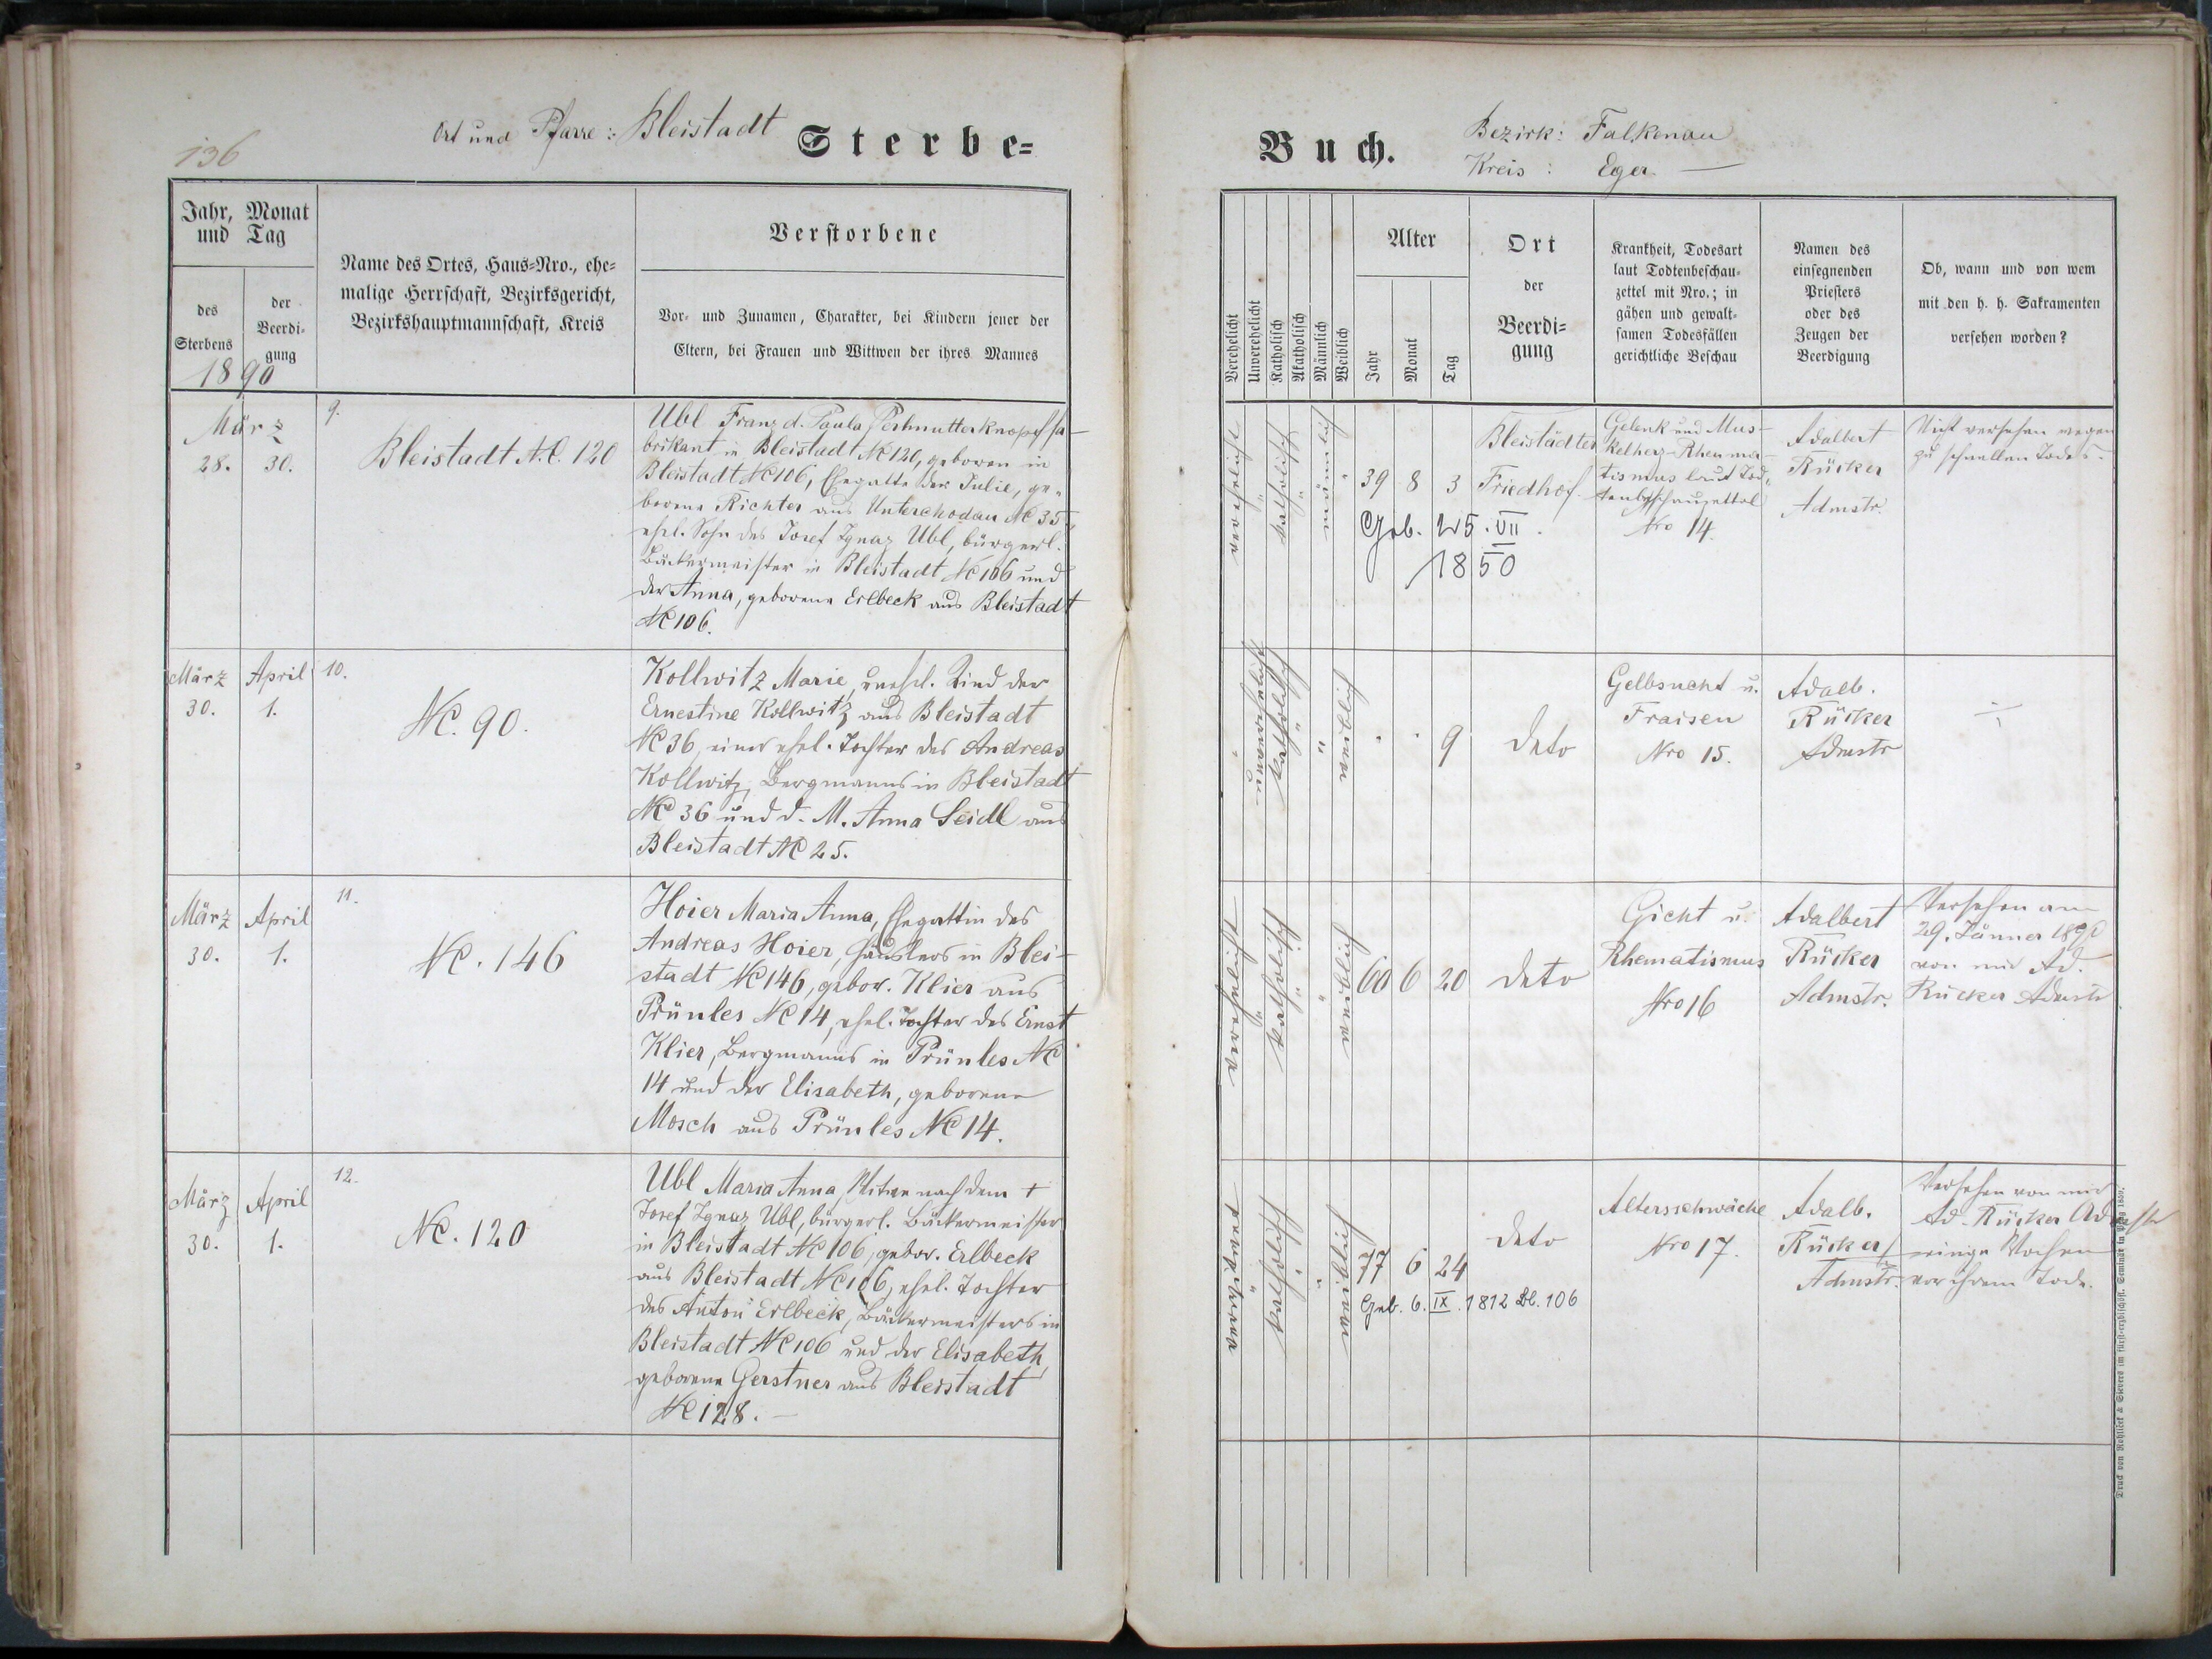 136
Ort und Pfarre: Bleistadt
Sterbe=
Jahr, Monat
und Tag
des
Sterbens
der
Beerdi-
gung
1890
Name des Ortes, Haus=Nro., ehe=
malige Herrschaft, Bezirksgericht,
Bezirkshauptmannschaft, Kreis
Verstorbene
Vor- und Zunamen, Charakter, bei Kindern jener der
Eltern, bei Frauen und Wittwen der ihres Mannes
März
28. 30.
9.
Bleistadt N.C. 120
Ubl Franz d. Paula Perlmutterknopffa-
brikant in Bleistadt NC 120, geboren in
Bleistadt NC 106, Ehegatte der Julie, ge-
borene Richter aus Unterchodau NC 35,
ehel. Sohn des Josef Ignaz Ubl, bürgerl.
Bäckermeister in Bleistadt NC 106 und
der Anna, geborene Erlbeck aus Bleistadt
NC 106.
März April
30. 1.
10.
NC. 90.
Kollwitz Marie, unehel. Kind der
Ernestine Kollwitz aus Bleistadt
NC 36, einer ehel. Tochter des Andreas
Kollwitz, Bergmanns in Bleistadt
NC 36 und d. M. Anna Seidl aus
Bleistadt NC 25.
März April
30. 1.
11.
NC. 146
Hoier Maria Anna, Ehegattin des
Andreas Hoier, Häuslers in Blei-
stadt NC 146, gebor. Klier aus
Prünles NC 14, ehel. Tochter des Ernst
Klier, Bergmanns in Prünles NC
14 und der Elisabeth, geborene
Mosch aus Prünles NC 14.
März April
30. 1.
12.
NC. 120
Ubl Maria Anna, Witwe nach dem +
Josef Ignaz Ubl, bürgerl. Bäckermeister
in Bleistadt NC 106, gebor. Erlbeck
aus Bleistadt NC 106, ehel. Tochter
des Anton Erlbeck, Bäckermeisters in
Bleistadt NC 106 und der Elisabeth,
geborene Gerstner aus Bleistadt
NC 128. –
Buch.
Bezirk: Falkenau
Kreis : Eger. —
Verehelicht
Unverehelicht
Katholisch
Akatholisch
Männlich
Weiblich
Alter
Jahr
Monat
Tag
Ort
der
Beerdi=
gung
Krankheit, Todesart
laut Todtenbeschau=
zettel mit Nro.; in
gähen und gewalt=
samen Todesfällen
gerichtliche Beschau
Namen des
einsegnenden
Priesters
oder des
Zeugen der
Beerdigung
Ob, wann und von wem
mit den h. h. Sakramenten
versehen worden?
verehelicht
"
katholisch
"
männlich
"
39 8 3
Geb. 25. VII.
1850
Bleistädter
Friedhof.
Gelenk und Mus-
kelherz-Rheuma-
tismus laut Tod-
tenbeschauzettel
Nro 14.
Adalbert
Rücker
Admstr.
Nicht versehen wegen
zu schnellen Todes.
katholisch
"
"
weiblich
. . 9
Dato
Gelbsucht u.
Fraisen
Nro 15.
Adalb.
Rücker
Admstr
÷
verehelicht
"
katholisch
"
"
weiblich
60 6 20
Dato
Gicht u.
Rhematismus
Nro 16
Adalbert
Rücker
Admstr.
Versehen am
29. Jänner 1890
von mir Ad.
Rücker Admstr
verwitwet
"
katholisch
"
"
weiblich
77 6 24
Geb. 6. IX. 1812 Bl. 106
Dato
Altersschwäche
Nro 17.
Adalb.
Rücker
Admstr.
Versehen von mir
Ad. Rücker Admstr
einige Wochen
vor ihrem Tode.